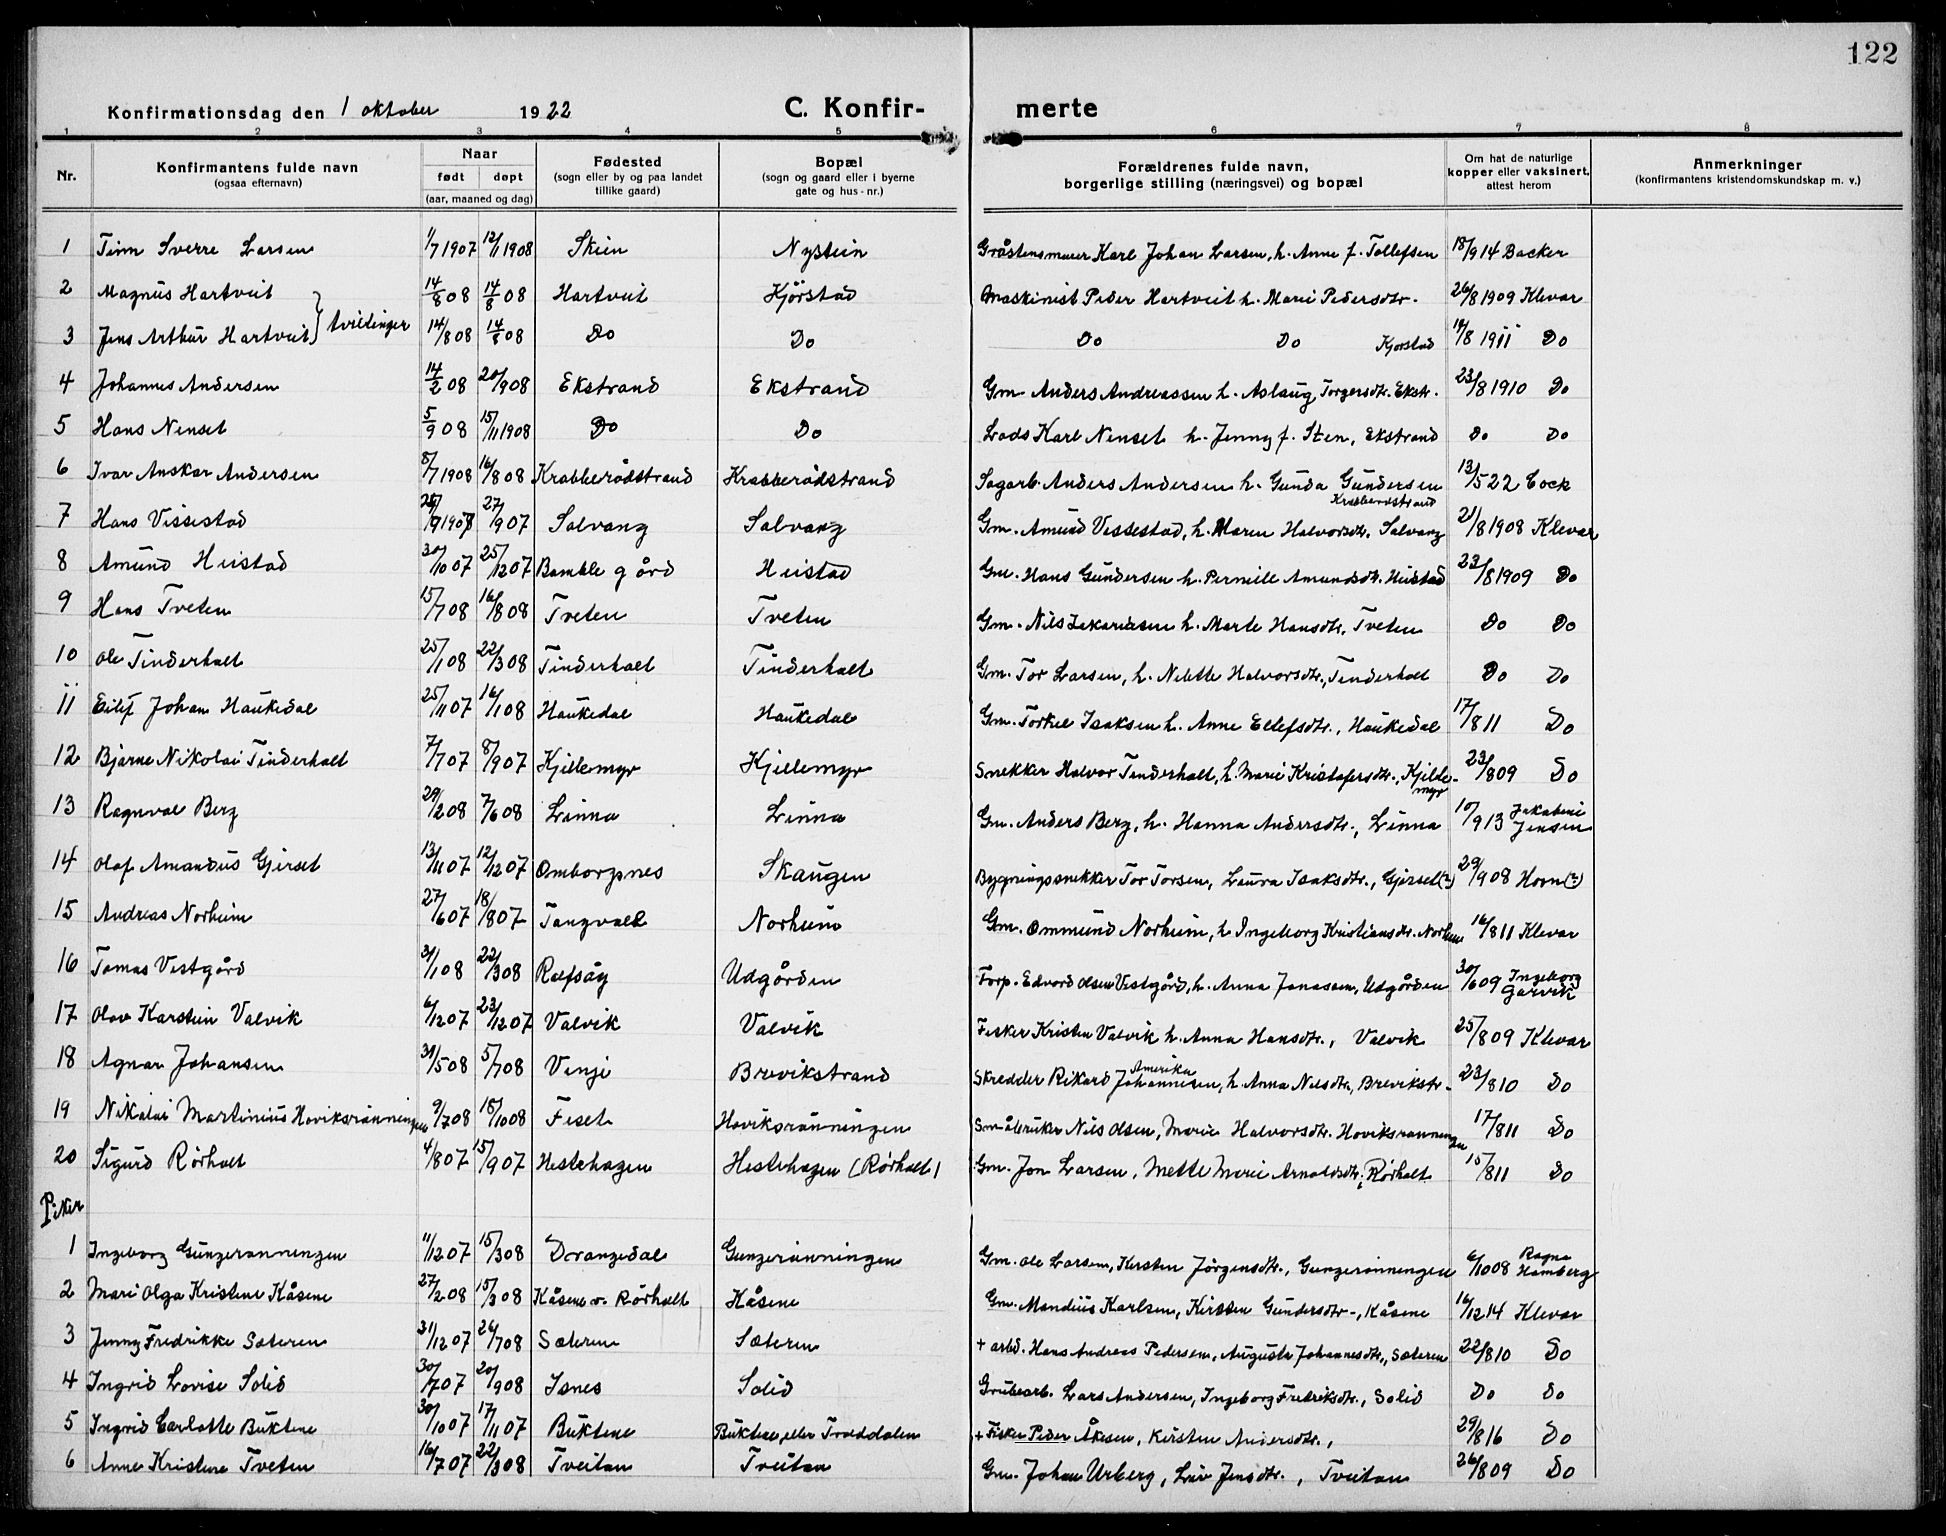 122
Konfirmationsdag den 1 oktober 1922 C. Konfir- merte
1 2 3 4 5 6 7 8
Nr. Konfirmantens fulde navn (ogsaa efternavn) Naar født døpt (aar, maaned og dag) Fødested (sogn eller by og paa landet tillike gaard) Bopæl (sogn og gaard eller i byerne gate og hus-nr.) Forældrenes fulde navn, borgerlige stilling (næringsvei) og bopæl Om hat de naturlige kopper eller vaksinert, attest herom Anmerkninger (konfirmantens kristendomskundskap m. v.)
1 Finn Sverre Larsen 1/7 1907 12/1 1908 Skien Nystein Gråstensmurer Karl Johan Larsen, h. Anne f. Tollefsen 18/9 14 Backer
2 Magnus Hartveit 14/8 08 14/8 08 Hartveit Kjørstad Maskinist Peder Hartveit h. Marie Pedersdtr. 26/8 1909 Klevar
3 Jens Arthur Hartveit } tvillinger 14/8 08 14/8 08 Do Do Do Do Kjørstad 14/8 1911 Do
4 Johannes Andersen 14/2 08 20/9 08 Ekstrand Ekstrand Gm. Anders Andreassen h. Aslaug Torgersdtr. Ekstr. 23/8 1910 Do
5 Hans Nenset 5/9 08 15/11 1908 Do Do Lods Karl Nenset h. Jenny f. Sten, Ekstrand Do Do
6 Ivar Anskar Andersen 8/7 1908 16/8 08 Krabberødstrand Krabberødstrand Sagarb. Anders Andersen h. Gunda Gundersen Krabberødstrand 13/5 22 Cock
7 Hans Vissestad 26/7 1907 27/9 07 Solvang Solvang Gm. Amund Vissestad, h. Maren Halvorsdtr. Solvang 21/8 1908 Klevar
8 Amund Heistad 30/10 07 25/12 07 Bamble gård Heistad Gm. Hans Gundersen h. Pernille Amundsdtr. Heistad 23/8 1909 Do
9 Hans Tveten 15/7 08 16/8 08 Tveten Tveten Gm. Nils Zakariasen h. Marte Hansdtr. Tveten Do Do
10 Ole Tinderholt 25/1 08 22/3 08 Tinderholt Tinderholt Gm. Tor Larsen, h. Nilette Halvorsdtr., Tinderholt Do Do
11 Eilif Johan Haukedal 25/11 07 16/1 08 Haukedal Haukedal Gm. Torkel Isaksen h. Anne Ellefsdtr., Haukedal 17/8 11 Do
12 Bjarne Nikolai Tinderholt 7/7 07 8/9 07 Kjellemyr Kjellemyr Snekker Halvor Tinderholt, h. Marie Kristofersdtr., Kjillemyr 23/8 09 Do
13 Ragnval Berg 29/2 08 7/6 08 Linna Linna Gm. Anders Berg, h. Hanna Andersdtr., Linna 10/9 13 Jakobine Jensen
14 Olaf Amandus Gjerset 13/11 07 12/12 07 Omborgsnes Skaugen Bygningssnekker Tor Torsen, Laura Isaksdtr., Gjerset (?) 29/9 08 Horn (?)
15 Andreas Norheim 27/6 07 18/8 07 Tangvall Norheim Gm. Ommund Norheim, h Ingeborg Kristiansdtr. Norheim 16/8 11 Klevar
16 Tomas Vestgård 31/1 08 22/3 08 Ræfsåg Udgården Forp. Edvard Olsen Vestgård, h. Anna Jonassen, Udgården 30/6 09 Ingeborg Garvik
17 Olav Karstein Valvik 6/12 07 23/12 07 Valvik Valvik Fisker Kristen Valvik h. Anna Hansdtr., Valvik 25/8 09 Klevar
18 Agnar Johansen 31/5 08 5/7 08 Vinje Brevikstrand Skredder Rikard Johannesen, Amerika h. Anna Nilsdtr, Brevikstr. 23/8 10 Do
19 Nikolai Martinius Hoviksrønningen 9/7 08 18/10 08 Feset Hoviksrønningen Småbruker Nils Olsen, Marie Halvorsdtr. Hoviksrønningen 17/8 11 Do
20 Sigurd Rørholt 4/8 07 15/9 07 Hestehagen Hestehagen (Rørholt) Gm. Jon Larsen, Mette Marie Arnoldsdtr., Rørholt 15/8 11 Do
Piker
1 Ingeborg Gungerønningen 11/12 07 15/3 08 Drangedal Gungerønningen Gm. Ole Larsen, Kirsten Jørgensdtr., Gungerønningen 6/10 08 Ragna Homberg
2 Mari Olga Kristine Kåsene 27/2 08 15/3 08 Kåsene v. Rørholt Kåsene Gm. Mandius Karlsen, Kirsten Gundersdtr., Kåsene 16/12 14 Klevar
3 Jenny Fredrikke Sæteren 31/12 07 26/7 08 Sæteren Sæteren + arbd. Hans Andreas Pedersen, Augusta Johannesdtr., Sæteren 22/8 10 Do
4 Ingrid Lovise Solid 30/7 07 20/9 08 Isnes Solid Grubearb. Lars Andersen, Ingeborg Fredriksdtr., Solid Do Do
5 Ingrid Carlotte Buktene 30/10 07 17/11 07 Buktene Buktene, eller Træddalen + Fisker Peder Åkesen, Kirsten Andersdtr., 29/8 16 Do
6 Anne Kristine Tveten 16/7 07 22/3 08 Tveitan Tveitan Gm. Johan Urberg, Liv Jensdtr., Tveitan 26/8 09 Do